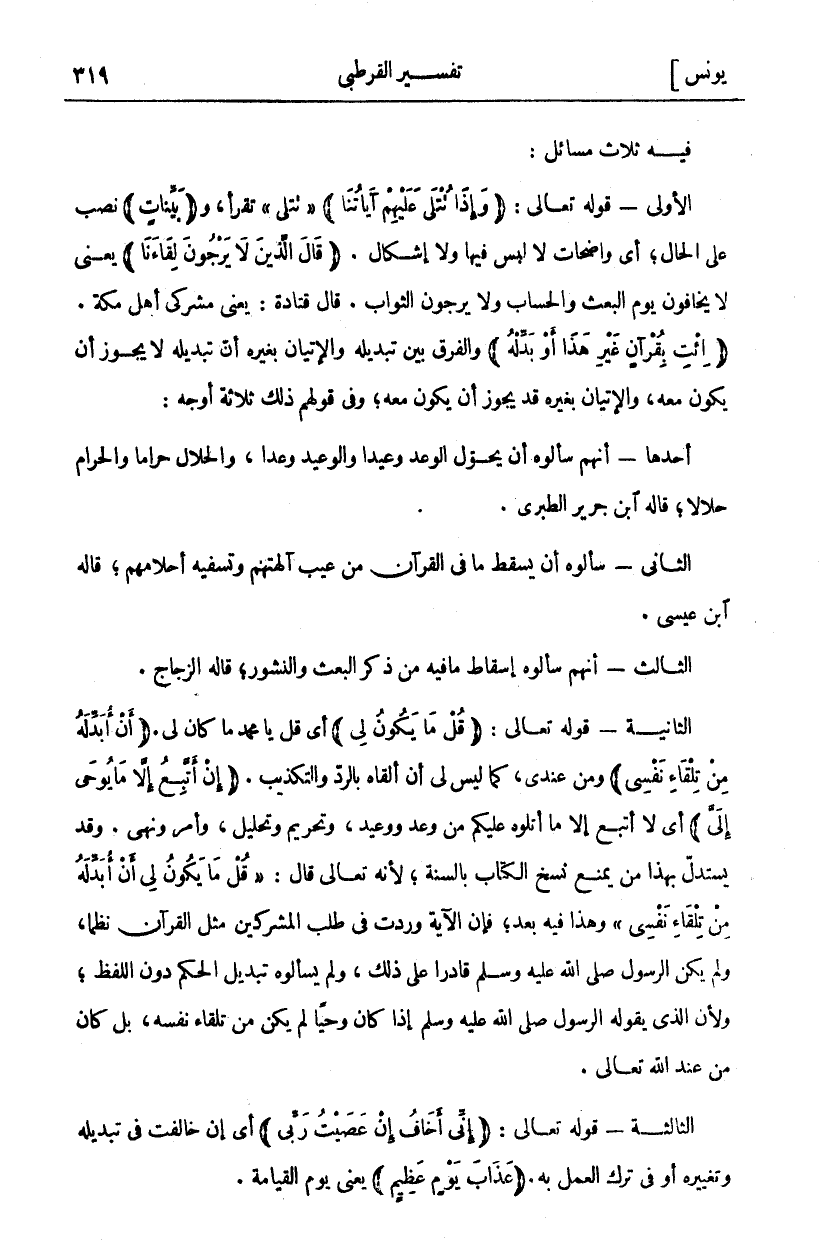 يونس [ تفســـير القرطبى ٣١٩
فيــه ثلاث مسائل :
الأولى – قوله تعـالى : ﴿ وَإِذَا تُتْلَى عَلَيْهِمْ آيَاتُنَا ﴾ « تتلى » تقرأ، و﴿ بَيِّنَاتٍ ﴾ نصب
على الحال؛ أى واضحات لا لبس فيها ولا إشكال . ﴿ قَالَ الَّذِينَ لَا يَرْجُونَ لِقَاءَنَا ﴾ يعـنى
لا يخافون يوم البعث والحساب ولا يرجون الثواب . قال قتادة : يعنى مشركى أهل مكة .
﴿ اِئْتِ بِقُرْآنٍ غَيْرِ هَذَا أَوْ بَدِّلْهُ ﴾ والفرق بين تبديله والإتيان بغيره أنّ تبديله لا يجـوز أن
يكون معه، والإتيان بغيره قد يجوز أن يكون معه؛ وفى قولهم ذلك ثلاثة أوجه :
أحدها – أنهم سألوه أن يحـوّل الوعد وعيدا والوعيد وعدا ، والحلال حراما والحرام
حلالا؛ قاله آبن جرير الطبرى .
الثـانى – سألوه أن يسقط ما فى القرآن من عيب آلهتهم وتسفيه أحلامهم ؛ قاله
آبن عيسى .
الثـالث – أنهم سألوه إسقاط مافيه من ذكر البعث والنشور؛ قاله الزجاج .
الثانيــة – قوله تعـالى : ﴿ قُلْ مَا يَكُونُ لِى ﴾ أى قل يا محمد ما كان لى. ﴿ أَنْ أُبَدِّلَهُ
مِنْ تِلْقَاءِ نَفْسِى ﴾ ومن عندى، كما ليس لى أن ألقاه بالردّ والتكذيب . ﴿ إِنْ أَتَّبِعُ إِلَّا مَايُوحَى
إِلَىَّ ﴾ أى لا أتبـع إلا ما أتلوه عليكم من وعد ووعيد ، وتحريم وتحليل ، وأمر ونهى . وقد
يستدلّ بهذا من يمنـع نسخ الكتاب بالسنة ؛ لأنه تعـالى قال : « قُلْ مَا يَكُونُ لِى أَنْ أُبَدِّلَهُ
مِنْ تِلْقَاءِ نَفْسِى » وهذا فيه بعد؛ فإن الآية وردت فى طلب المشركين مثل القرآن نظما،
ولم يكن الرسول صلى الله عليه وسـلم قادرا على ذلك ، ولم يسألوه تبديل الحكم دون اللفظ ؛
ولأن الذى يقوله الرسول صلى الله عليه وسلم إذا كان وحيًا لم يكن من تلقاء نفسه، بل كان
من عند الله تعـالى .
الثالثــة – قوله تعـالى : ﴿ إِنِّى أَخَافُ إِنْ عَصَيْتُ رَبِّى ﴾ أى إن خالفت فى تبديله
وتغييره أو فى ترك العمل به. ﴿ عَذَابَ يَوْمٍ عَظِيمٍ ﴾ يعنى يوم القيامة .